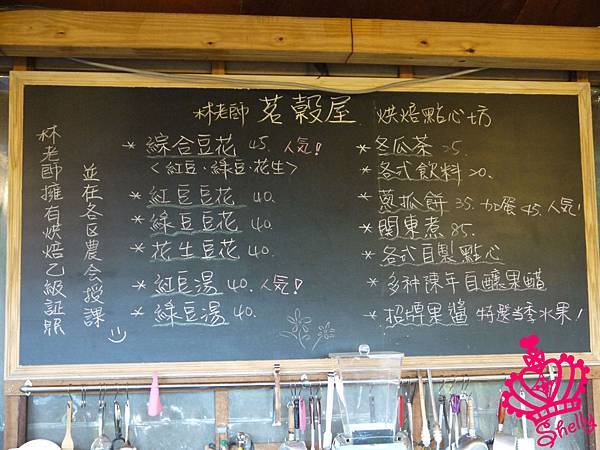 林老師 茗穀屋 烘焙點心坊
林老師擁有烘焙乙級証照
並在各区農会授課
* 綜合豆花 45. 人気!
<紅豆·綠豆·花生>
* 紅豆豆花 40.
* 綠豆豆花 40.
* 花生豆花 40.
* 紅豆湯 40. 人気!
* 綠豆湯 40.
* 冬瓜茶 25.
* 各式飲料 20.
* 蔥抓餅 35. 加蛋 45. 人気!
* 関東煮 85.
* 各式自製點心
* 多种陳年自釀果醋
* 招牌果醬 特選当季水果!
Shelly